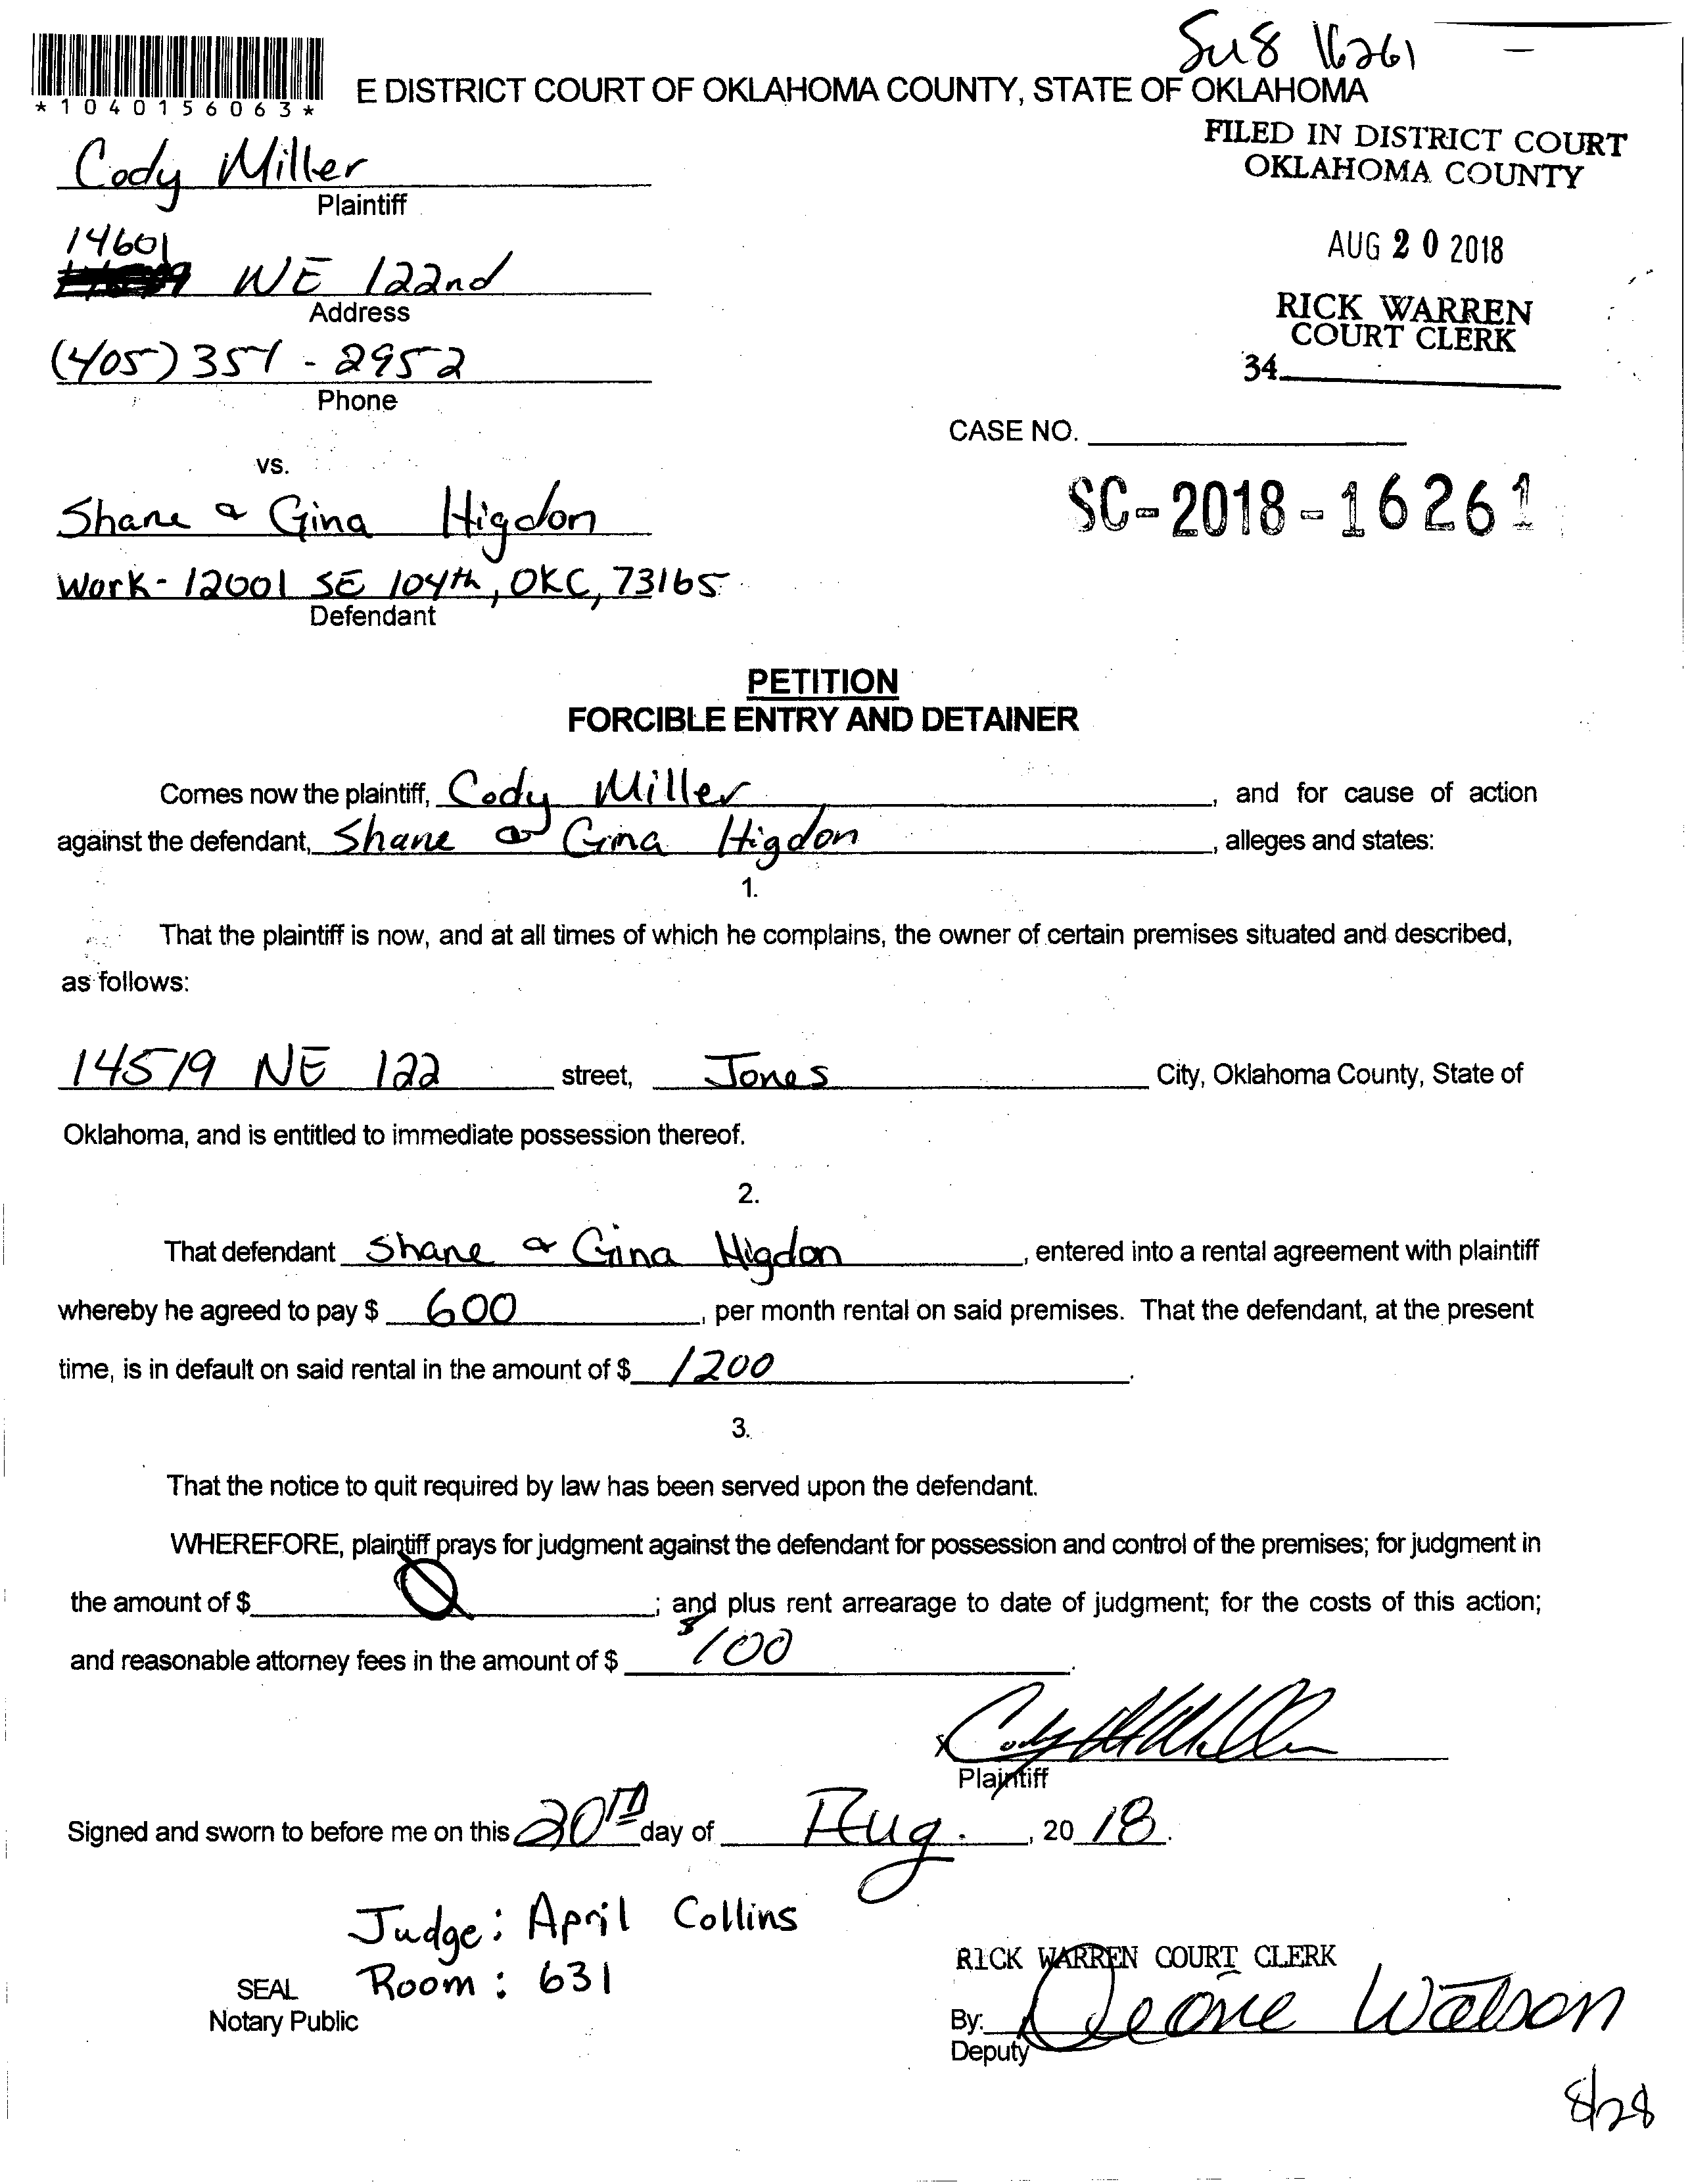 Su8 16261
*1040156063*
E DISTRICT COURT OF OKLAHOMA COUNTY, STATE OF OKLAHOMA
FILED IN DISTRICT COURT
OKLAHOMA COUNTY
Cody Miller
Plaintiff
14601
NE 122nd
Address
AUG 20 2018
RICK WARREN
COURT CLERK
34
(405) 351-2952
Phone
CASE NO.
vs.
SC-2018-16261
Shane & Gina Higdon
Work - 12001 SE 104th, OKC, 73165
Defendant
PETITION
FORCIBLE ENTRY AND DETAINER
Comes now the plaintiff, Cody Miller, and for cause of action
against the defendant, Shane & Gina Higdon, alleges and states:
1.
That the plaintiff is now, and at all times of which he complains, the owner of certain premises situated and described,
as follows:
14519 NE 122 street, Jones City, Oklahoma County, State of
Oklahoma, and is entitled to immediate possession thereof.
2.
That defendant Shane & Gina Higdon, entered into a rental agreement with plaintiff
whereby he agreed to pay $ 600, per month rental on said premises. That the defendant, at the present
time, is in default on said rental in the amount of $ 1200.
3.
That the notice to quit required by law has been served upon the defendant.
WHEREFORE, plaintiff prays for judgment against the defendant for possession and control of the premises; for judgment in
the amount of $ Ø; and plus rent arrearage to date of judgment; for the costs of this action;
and reasonable attorney fees in the amount of $ $100.
x Cody Miller
Plaintiff
Signed and sworn to before me on this 20TH day of Aug., 20 18.
Judge: April Collins
Room: 631
SEAL
Notary Public
RICK WARREN COURT CLERK
By: Watson
Deputy
8/28